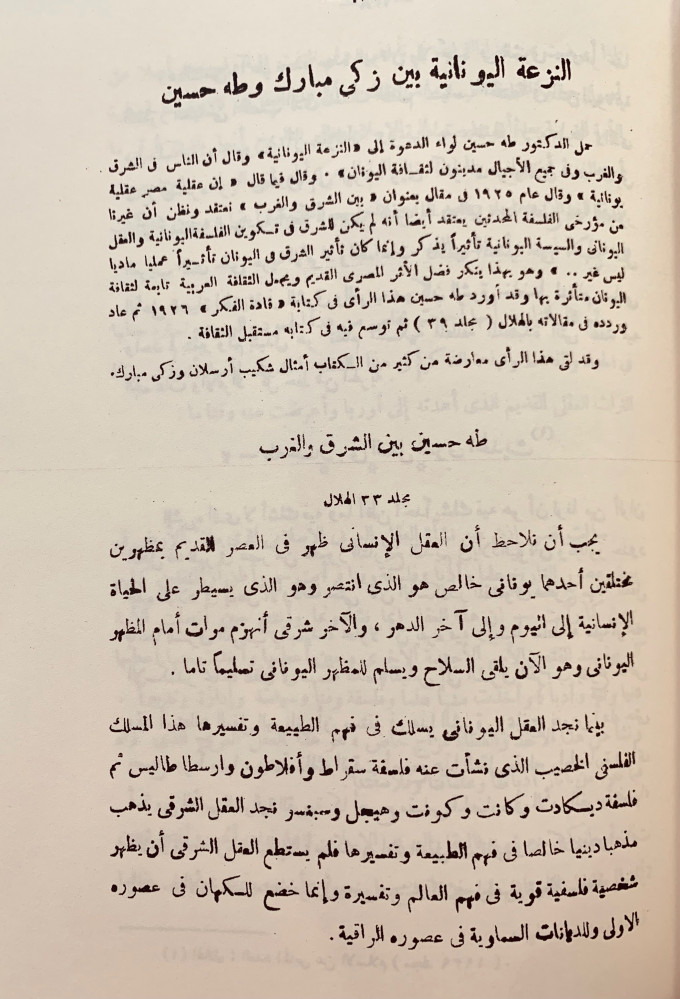 النزعة اليونانية بين زكى مبارك وطه حسين
حمل الدكتور طه حسين لواء الدعوة إلى «النزعة اليونانية» وقال أن الناس فى الشرق
والغرب وفى جميع الأجيال مدينون لثقافة اليونان» . وقال فيما قال « إن عقلية مصر عقلية
يونانية » وقال عام ١٩٢٥ فى مقال بعنوان « بين الشرق والغرب » نعتقد ونظن أن غيرنا
من مؤرخى الفلسفة المحدثين يعتقد أيضا أنه لم يكن للشرق فى تكوين الفلسفة اليونانية والعقل
اليونانى والسيسة اليونانية تأثيراً يذكر وإنما كان تأثير الشرق فى اليونان تأثيراً عمليا ماديا
ليس غير .. » وهو بهذا ينكر فضل الأثر المصرى القديم ويجعل الثقافة العربية تابعة لثقافة
اليونان متأثرة بها وقد أورد طه حسين هذا الرأى فى كتابة « قادة الفكر » ١٩٢٦ ثم عاد
وردده فى مقالاته بالهلال ( مجلد ٣٩ ) ثم توسع فيه فى كتابه مستقبل الثقافة .
وقد لقى هذا الرأى معارضة من كثير من الكتاب أمثال شكيب أرسلان وزكى مبارك.
طه حسين بين الشرق والغرب
مجلد ٣٣ الهلال
يجب أن نلاحظ أن العقل الإنسانى ظهر فى العصر القديم بمظهرين
مختلقين أحدهما يونانى خالص هو الذى انتصر وهو الذى يسيطر على الحياة
الإنسانية إلى اليوم وإلى آخر الدهر ، والآخر شرقى أنهزم مرات أمام المظهر
اليونانى وهو الآن يلقى السلاح ويسلم للمظهر اليونانى تسليماً تاما .
بينما نجد العقل اليونانى يسلك فى فهم الطبيعة وتفسيرها هذا المسلك
الفلسفى الخصيب الذى نشأت عنه فلسفة سقراط وأفلاطون وارسطا طاليس ثم
فلسفة ديكادت وكانت وكونت وهيجل وسبنسر نجد العقل الشرقى يذهب
مذهبا دينيا خالصا فى فهم الطبيعة وتفسيرها فلم يستطع العقل الشرقى أن يظهر
شخصية فلسفية قوية فى فهم العالم وتفسيرة وإنما خضع للكهان فى عصوره
الاولى وللديانات السماوية فى عصوره الراقية .